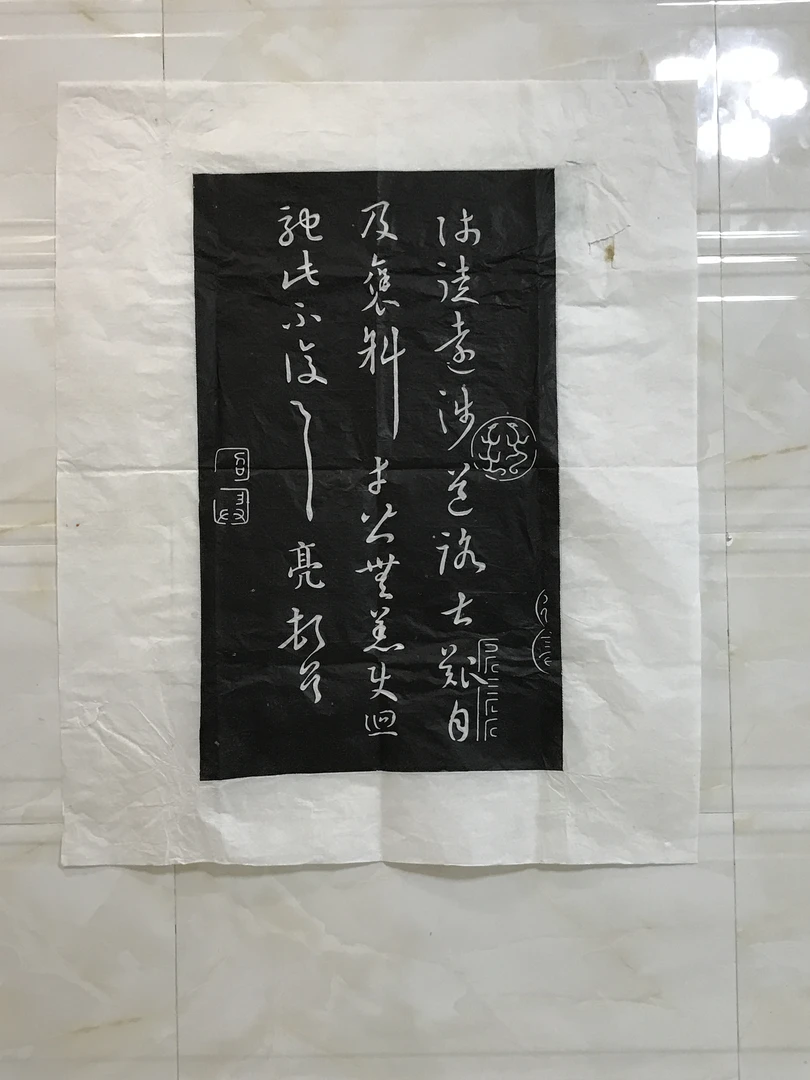 師徒遠涉道路甚艱自
及褒斜幸皆無恙使迴
馳此不復亮頓首